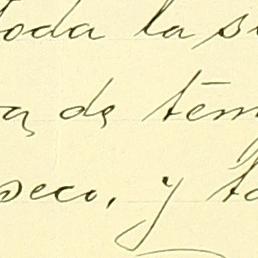 toda la s
a, de tem
seco, y t